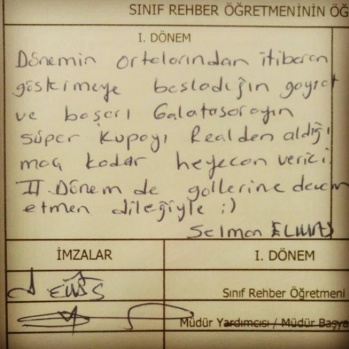 SINIF REHBER ÖĞRETMENİNİN ÖĞ
I. DÖNEM
Dönemin ortalarından itibaren
göstermeye başladığın gayret
ve başarı Galatasarayın
süper kupayı Realden aldığı
maç kadar heyecan verici.
II. Dönem de gollerine devam
etmen dileğiyle :)
Selman
İMZALAR
I. DÖNEM
Sınıf Rehber Öğretmeni
Müdür Yardımcısı / Müdür Başya